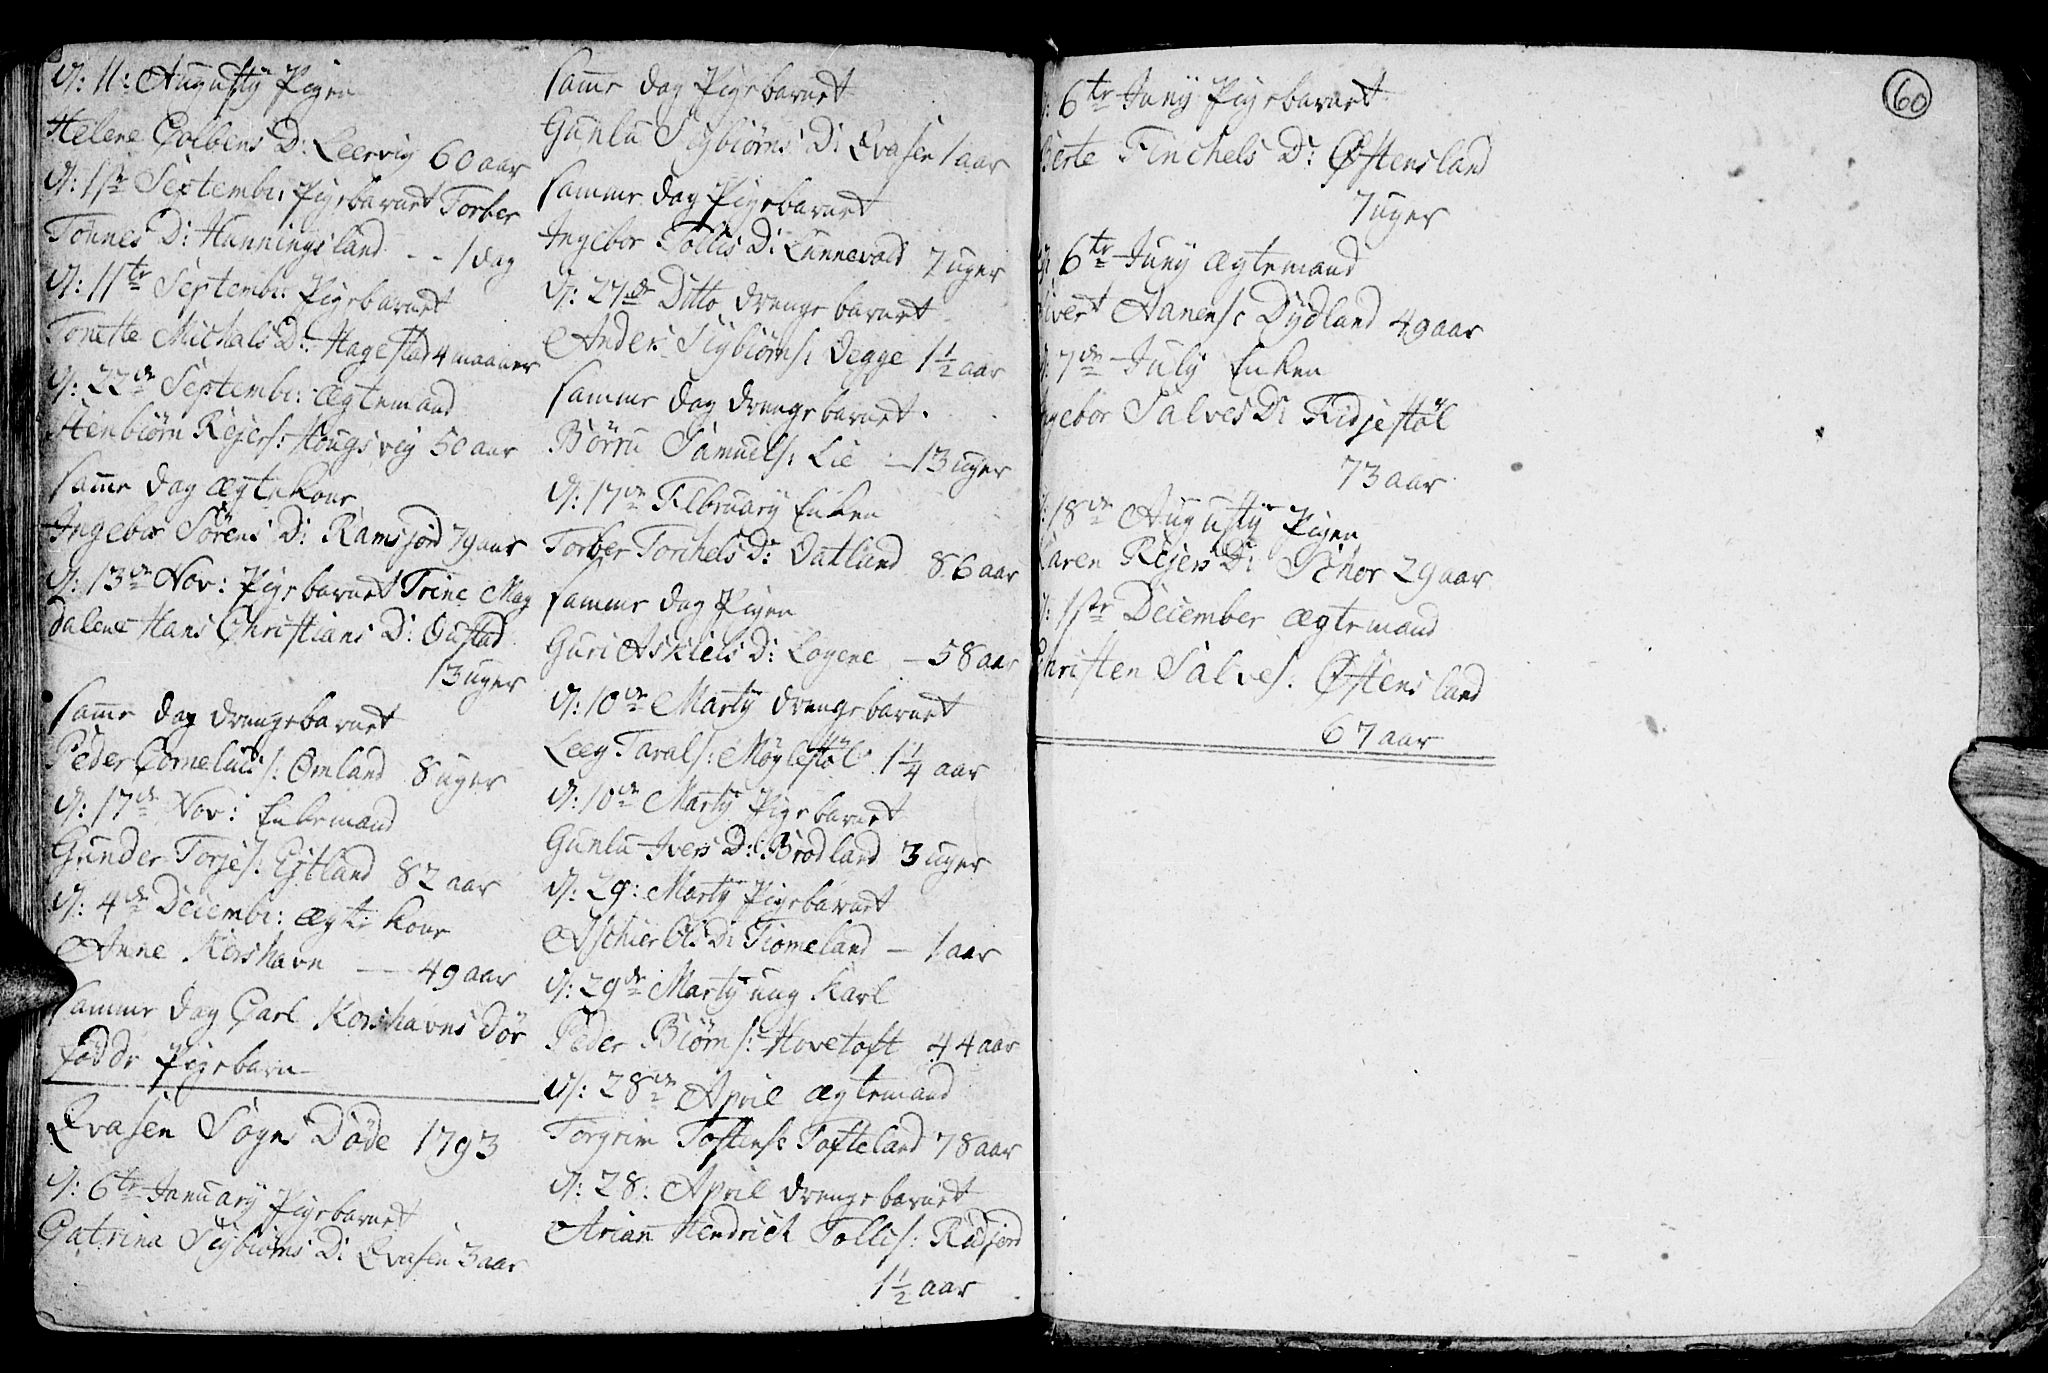 D: 11: Augusty Pigen
Helene Colbens D: Leervig 60 aar
D: 1ste Septembr: Pigebarnet Torber
Tönnes D: Hanningsland - - 1 dag
D: 11te Septembr: Pigebarnet
Tonette Michals D: Hagestad 4 maaner
D: 22de Septembr: ægtemand
Stenbiörn Rejers: Hougsvig 50 aar
samme dag ægtekone
Ingebor Sörens D: Ramsjord 79 aar
D: 13de Nov: Pigebarnet Trine Mag
dalene Hans Christians D: Gustad
13 uger
samme dag drengebarnet
Peder Cornelius s: Omland 8 uger
D: 17de Nov: Enkemand
Gunder Torjes: Egtland 82 aar
D: 4de Decembr: ægt: kone
Anne Korshavn — 49 aar
samme dag Carl Korshavns dör
födde Pigebarn
Qvasen Sogns Döde 1793
D: 6te January Pigebarnet
Catrina Sigbiörns D: Qvasen 3 aar
samme dag Pigebarnet
Gunlu Sigbiörns D: Qvasen 1 aar
samme dag Pigebarnet
Ingebor Tollis D: Lunnevald 7 uger
D: 27de Ditto drengebarnet
Anders Sigbiörns: degge 1 1/2 aar
samme dag drengebarnet.
Börru Samuels: Lie — 13 uger
D: 17de February Enken
Torber Torchels D: Oatland 86 aar
samme dag Pigen
Guri Askiels D: Logene — 58 aar
D: 10de Marty drengebarnet
Leeg Tarals: Möglestöl 1 1/4 aar
D: 10de Marty Pigebarnet
Gunlu Ivers D: Brodland 3 uger
D: 29: Marty Pigebarnet
Aschier Ols D: Tiomeland — 1 aar
D: 29de Marty ung Karl
Peder Biörns: Hovetoft 44 aar
D: 28de April ægtemand
Torgrim Tostens: Tofteland 78 aar
D: 28: April drengebarnet
Arian Hendrich Tollis: Rudjord
1 1/2 aar
60
6te Juny Pigebarnet
Berte Tinchels D: Östensland
7 uger
6te Juny ægtemand
Sivert Hanens: Dydland 49 aar
7de July Enken
Ingebor Salves D: Kidjestöl
73 aar
18de Augusty Pigen
Karen Rejers D: 29 aar
1ste December ægtemand
Christen Salves: Östensland
67 aar